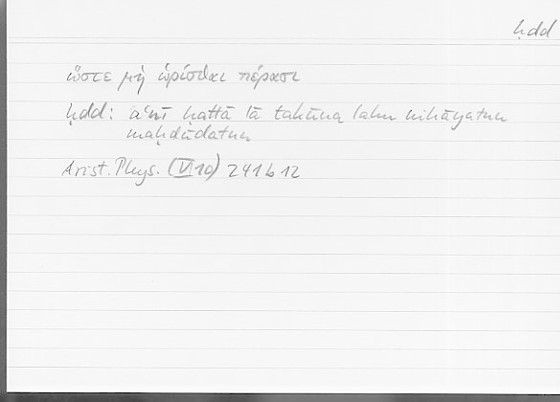 ḥdd
ὥστε μὴ ὡρίσθαι πέρασι
ḥdd: aʿnī ḥattā lā takūna lahu nihāyatun
maḥdūdatun
Arist. Phys. (VI 10) 241b12